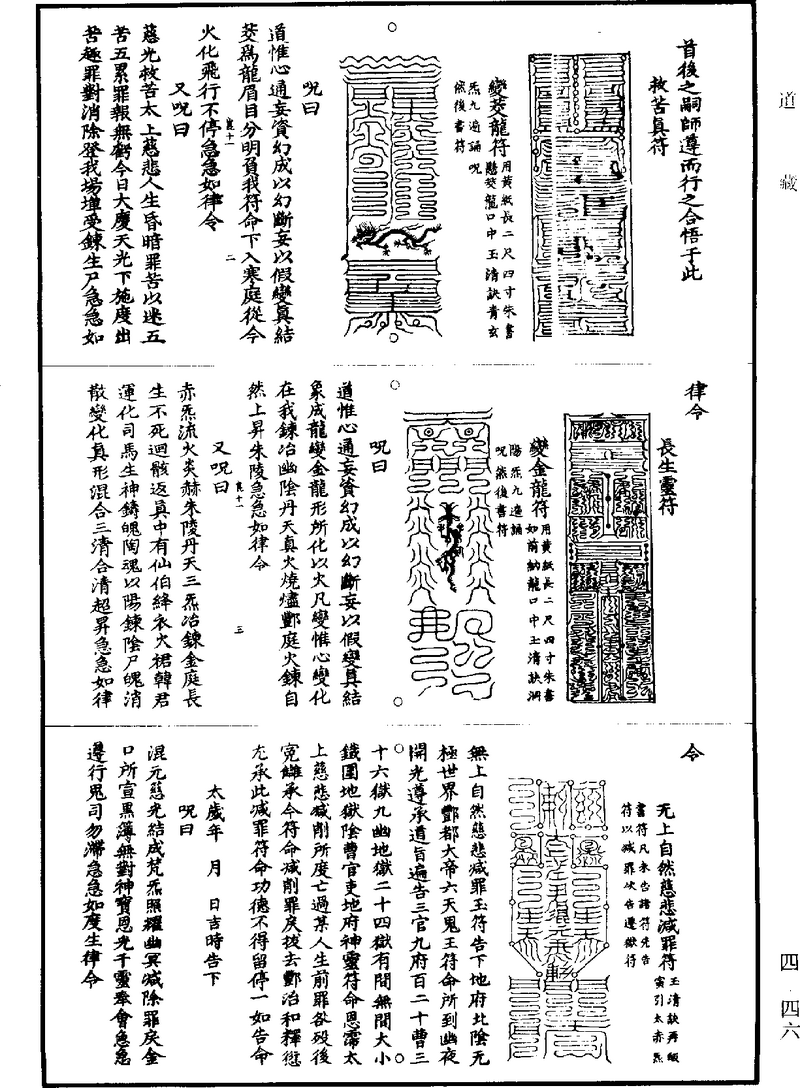 道藏
四·四六
首後之嗣師遵而行之合悟于此
救苦真符
變茭龍符
用黃紙長二尺四寸朱書
懸茭龍口中玉清訣青玄
炁九遍誦呪
然後書符
呪曰
道惟心通妄資幻成以幻斷妄以假變真結
茭為龍眉目分明負我符命下入寒庭從今
火化飛行不停急急如律令
又呪曰
慈光救苦太上慈悲人生昏暗罪苦以迷五
苦五累罪報無虧今日大慶天光下施度出
苦趣罪對消除登我場壇受鍊生尸急急如
律令
長生靈符
變金龍符
用黃紙長二尺四寸朱書
如前納龍口中玉清訣洞
陽炁九遍誦
呪然後書符
呪曰
道惟心通妄資幻成以幻斷妄以假變真結
象成龍變金龍形所化以火凡變惟心變化
在我鍊冶幽陰丹天真火燒燼酆庭火鍊自
然上昇朱陵急急如律令
又呪曰
赤炁流火炎赫朱陵丹天三炁冶鍊金庭長
生不死迴骸返真中有仙伯絳衣火裙韓君
運化司馬生神鑄魄陶魂以陽鍊陰尸魄消
散變化真形混合三清合清超昇急急如律
令
无上自然慈悲減罪符
玉清訣丹
寅引太赤炁
書符凡未告諸符先告
符以減罪次告遷獄符
無上自然慈悲減罪玉符告下地府北陰无
極世界酆都大帝六天鬼王符命所到幽夜
開光遵承道旨遍告三官九府百二十曹三
十六獄九幽地獄二十四獄有間無間大小
鐵圍地獄陰曹官吏地府神靈符命恩霈太
上慈悲減削所度亡過某人生前罪咎歿後
冤讎承今符命減削罪戾拔去酆冶和釋愆
尤承此減罪符命功德不得留停一如告命
太歲年　月　日吉時告下
呪曰
混元慈光結成梵炁照耀幽冥減除罪戾金
口所宣黑簿無對神寶恩光千靈奉會急急
遵行鬼司勿滯急急如度生律令